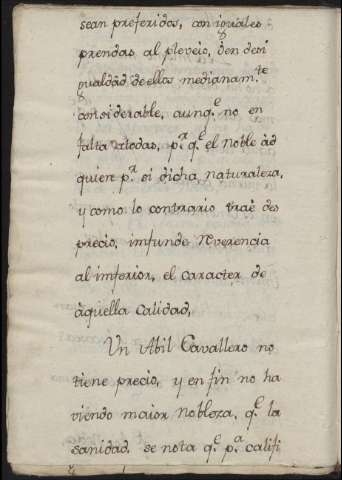 sean preferidos, con iguales
prendas al pleveio, ò en desi
gualdad de ellas medianam.te
considerable, aunq.e no en
falta atodas, p.r q.e el noble àd
quiere p.r si dicha naturaleza,
y como lo contrario trae des
precio, imfunde reverencia
al imferior, el caracter de
àquella calidad,
Un Abil Cavallero no
tiene precio, y en fin no ha
viendo maior nobleza, q.e la
sanidad, se nota q.e p.a califi